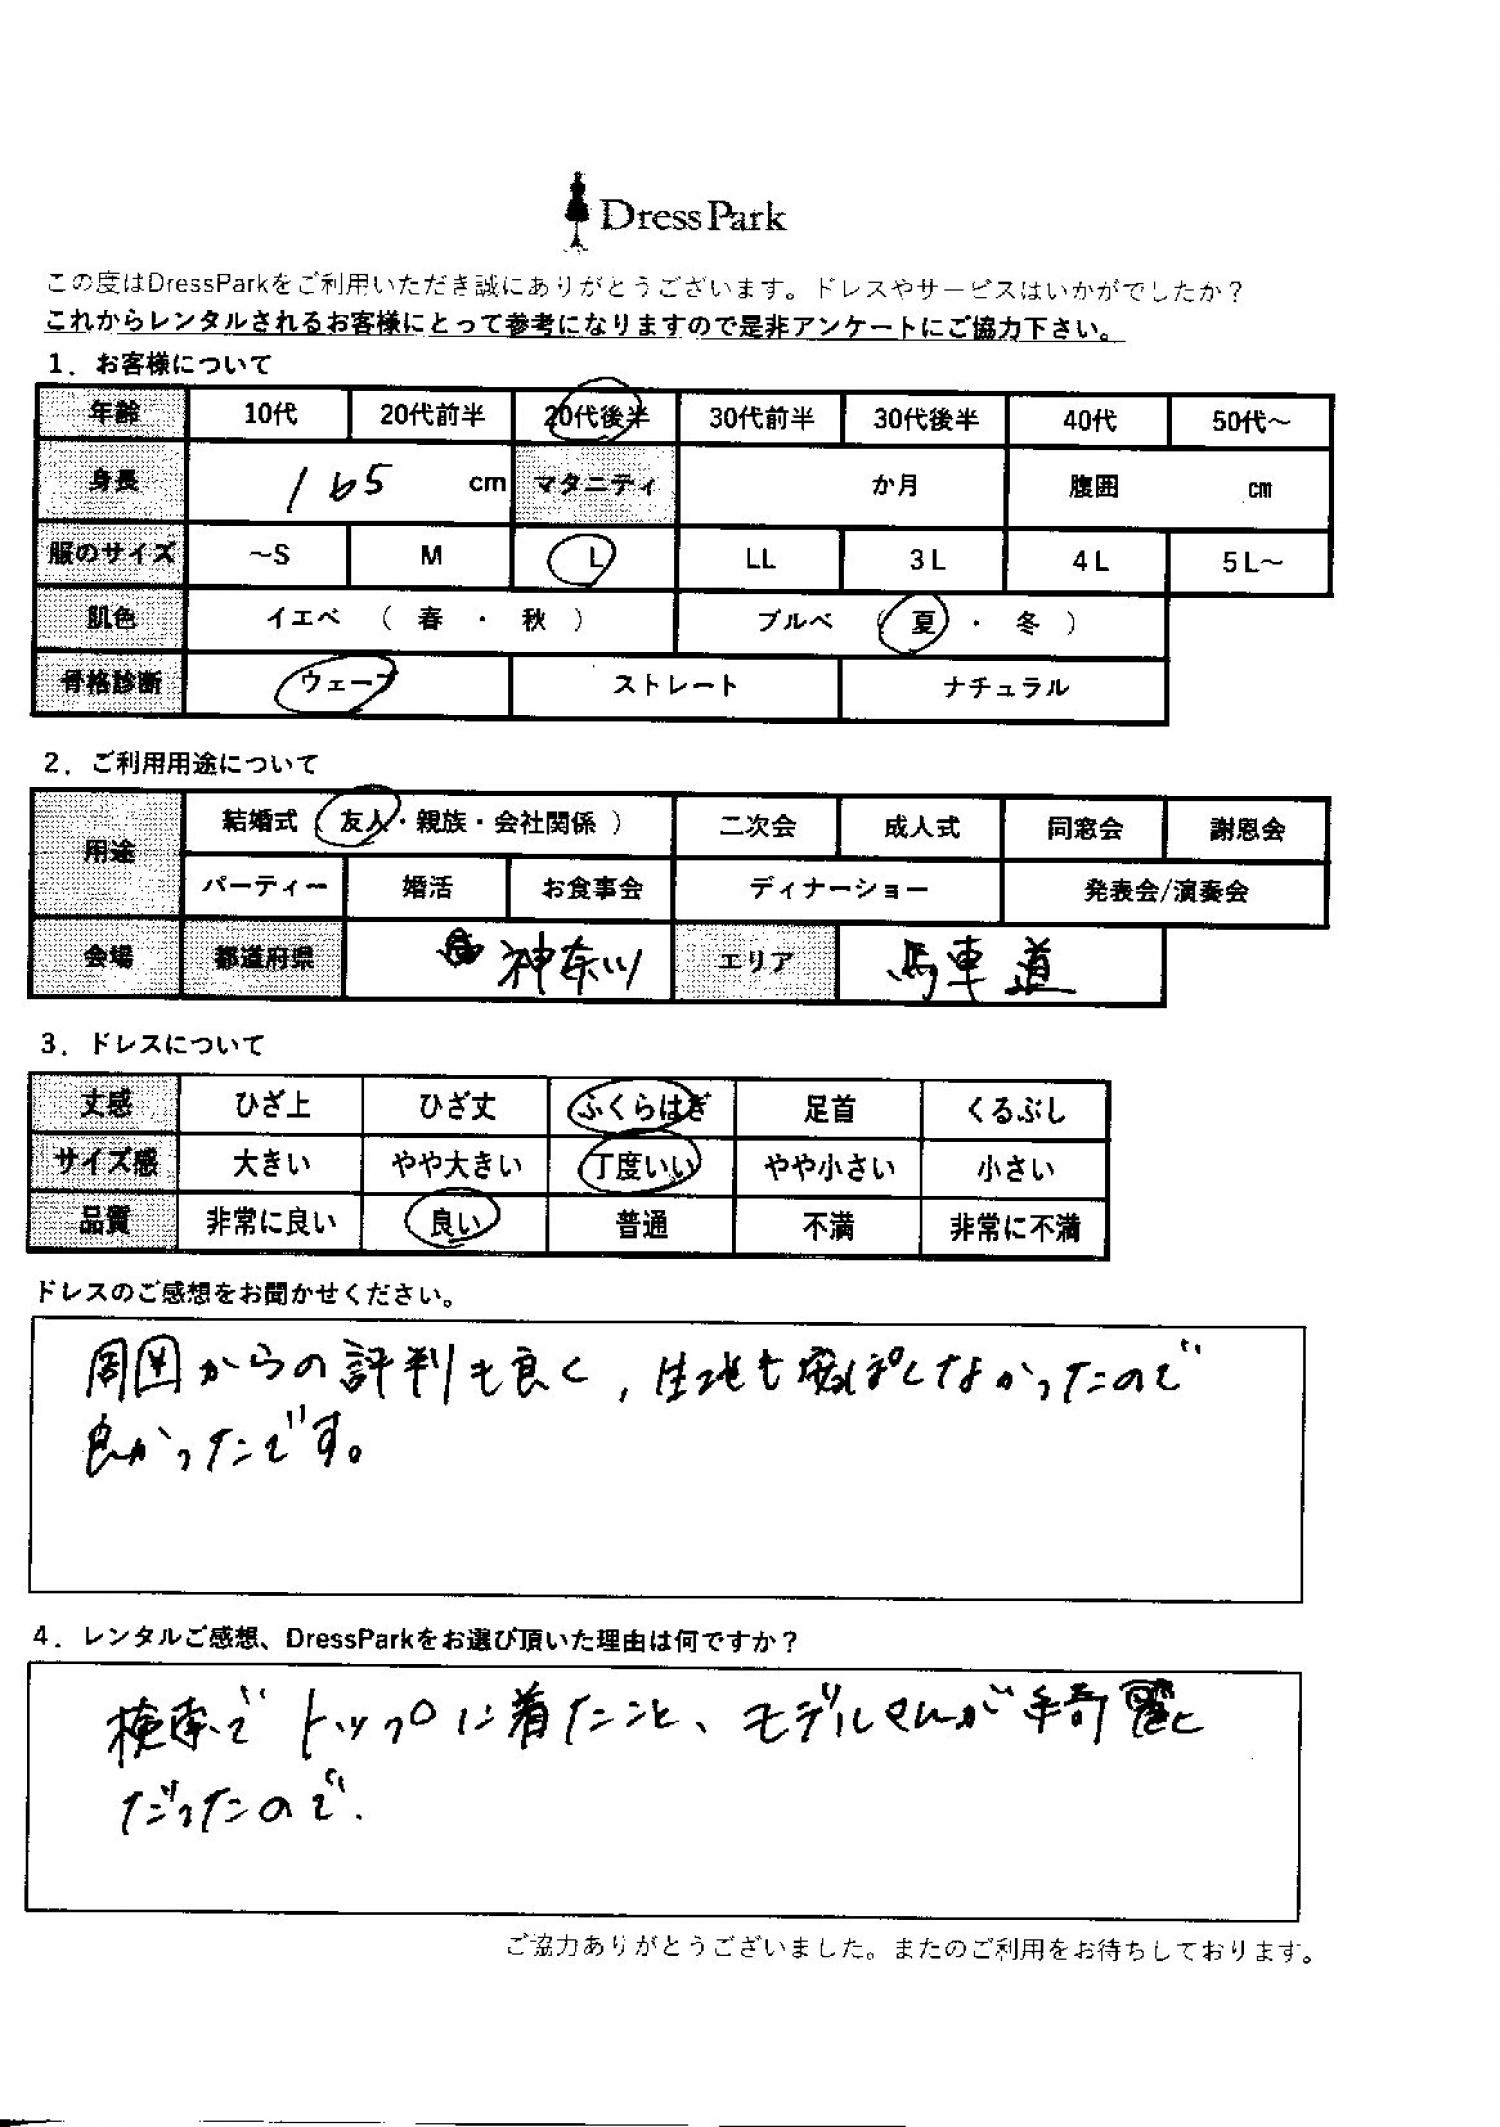 DressPark
この度はDressParkをご利用いただき誠にありがとうございます。ドレスやサービスはいかがでしたか？
これからレンタルされるお客様にとって参考になりますので是非アンケートにご協力下さい。
1．お客様について
年齢 10代 20代前半 20代後半 30代前半 30代後半 40代 50代～
身長 165 cm マタニティ か月 腹囲 cm
服のサイズ ～S M L LL 3L 4L 5L～
肌色 イエベ （ 春 ・ 秋 ） ブルベ （ 夏 ・ 冬 ）
骨格診断 ウェーブ ストレート ナチュラル
2．ご利用用途について
用途 結婚式（ 友人・親族・会社関係 ） 二次会 成人式 同窓会 謝恩会
パーティー 婚活 お食事会 ディナーショー 発表会/演奏会
会場 都道府県 神奈川 エリア 馬車道
3．ドレスについて
丈感 ひざ上 ひざ丈 ふくらはぎ 足首 くるぶし
サイズ感 大きい やや大きい 丁度いい やや小さい 小さい
品質 非常に良い 良い 普通 不満 非常に不満
ドレスのご感想をお聞かせください。
周囲からの評判も良く，生地も安っぽくなかったので
良かったです。
4．レンタルご感想、DressParkをお選び頂いた理由は何ですか？
検索でトップに着たこと、モデルさんが綺麗
だったので.
ご協力ありがとうございました。またのご利用をお待ちしております。